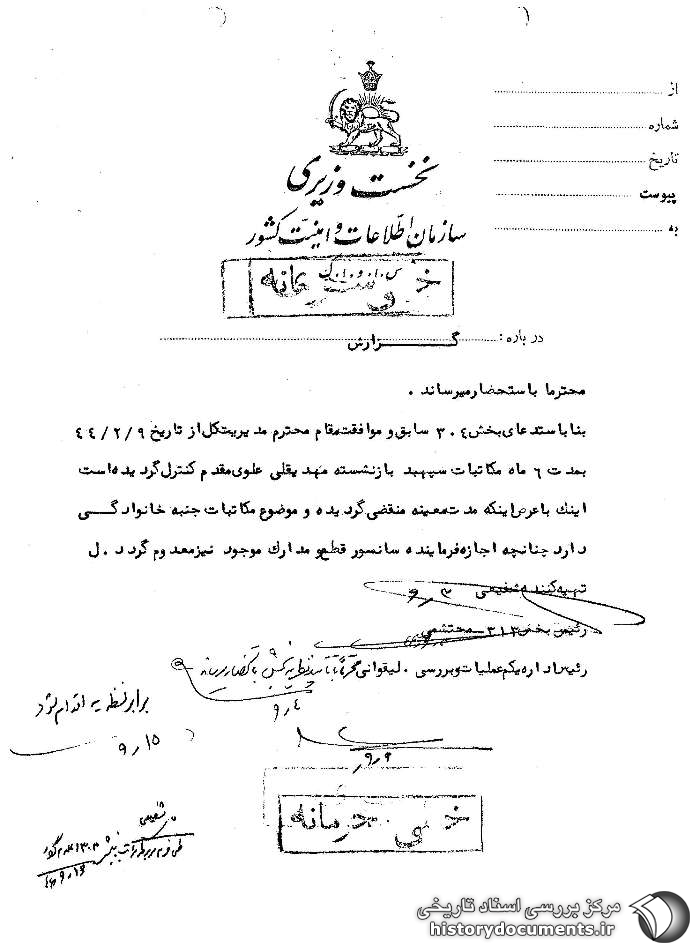 از
شماره
تاریخ
پیوست
به
نخست وزیری
سازمان اطلاعات و امنیت کشور
س.ا.و.ا.ک
خیلی محرمانه
در باره : گزارش
محترما باستحضار میرساند .
بنا باستدعای بخش ۳۰۴ سابق و موافقت مقام محترم مدیریت کل از تاریخ ۴۴/۲/۹
بمدت ۶ ماه مکاتبات سپهبد بازنشسته مهدیقلی علوی مقدم کنترل گردیده است
اینك با عرض اینکه مدت معینه منقضی گردیده و موضوع مکاتبات جنبه خانوادگی
دارد چنانچه اجازه فرمایند سانسور قطع و مدارك موجود نیز معدوم گردد . ل
تهیه کننده شفیعی ۹٫۳
رئیس بخش ۳۱۳ محتشمی
رئیس اداره یکم عملیات و بررسی . لیقوانی محترماً با تأیید نظریه بخش باستحضار میرساند
۹٫۴
برابر نظریه اقدام شود
۹٫۱۵
۹٫۹
خیلی محرمانه
شفیعی
مرکز بررسی اسناد تاریخی
historydocuments.ir